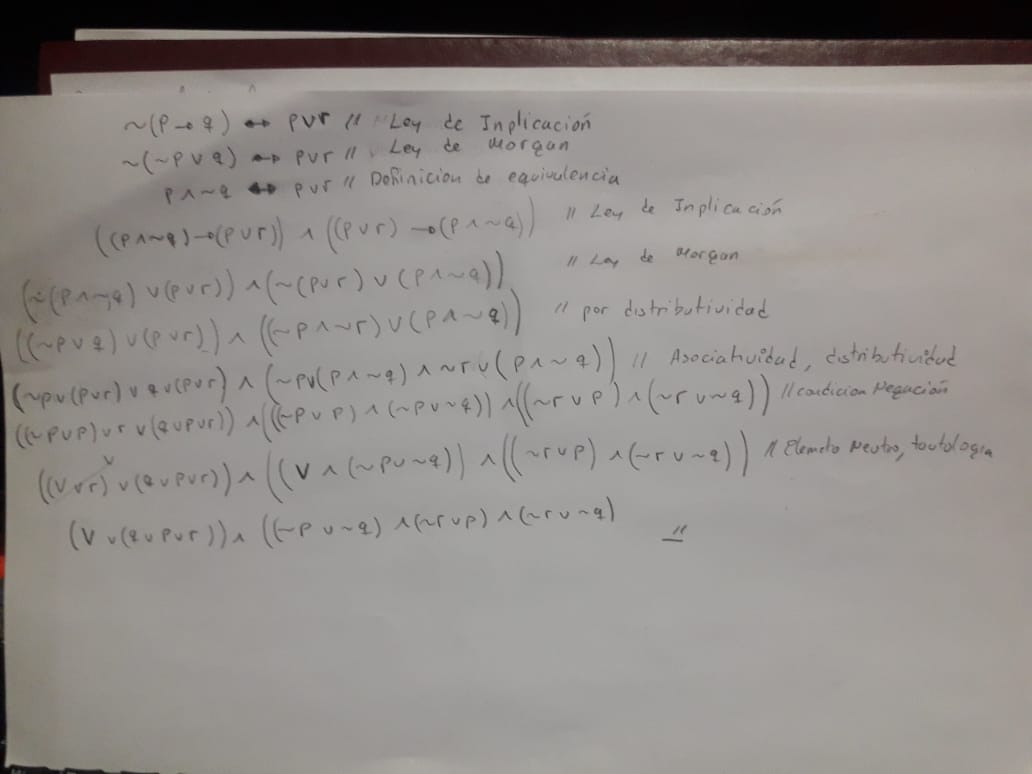 ~(p→q) ↔ pvr // Ley de Inplicación
~(~p v q) ↔ pvr // Ley de Morgan
p∧~q ↔ pvr // Definicion de equivulencia
((p∧~q)→(pvr)) ∧ ((pvr)→(p∧~q)) // Ley de Inplicación
(~(p∧~q) v(pvr)) ∧(~(pvr) v (p∧~q)) // Ley de Morgan
((~pvq) v (pvr)) ∧ ((~p∧~r)v(p∧~q)) // por distributividad
(~pv(pvr) v qv(pvr) ∧ (~pv(p∧~q) ∧ ~rv(p∧~q)) // Asociatividad, distributividad
((~pvp)vr v(qvpvr)) ∧((~pvp) ∧(~pv~q)) ∧((~rvp) ∧(~rv~q)) // condicion Negación
((Vvr) v(qvpvr)) ∧ ((V∧(~pv~q)) ∧((~rvp) ∧(~rv~q)) // Elemeto Neutro, toutologia
(Vv(qvpvr)) ∧ ((~pv~q) ∧(~rvp) ∧(~rv~q) //